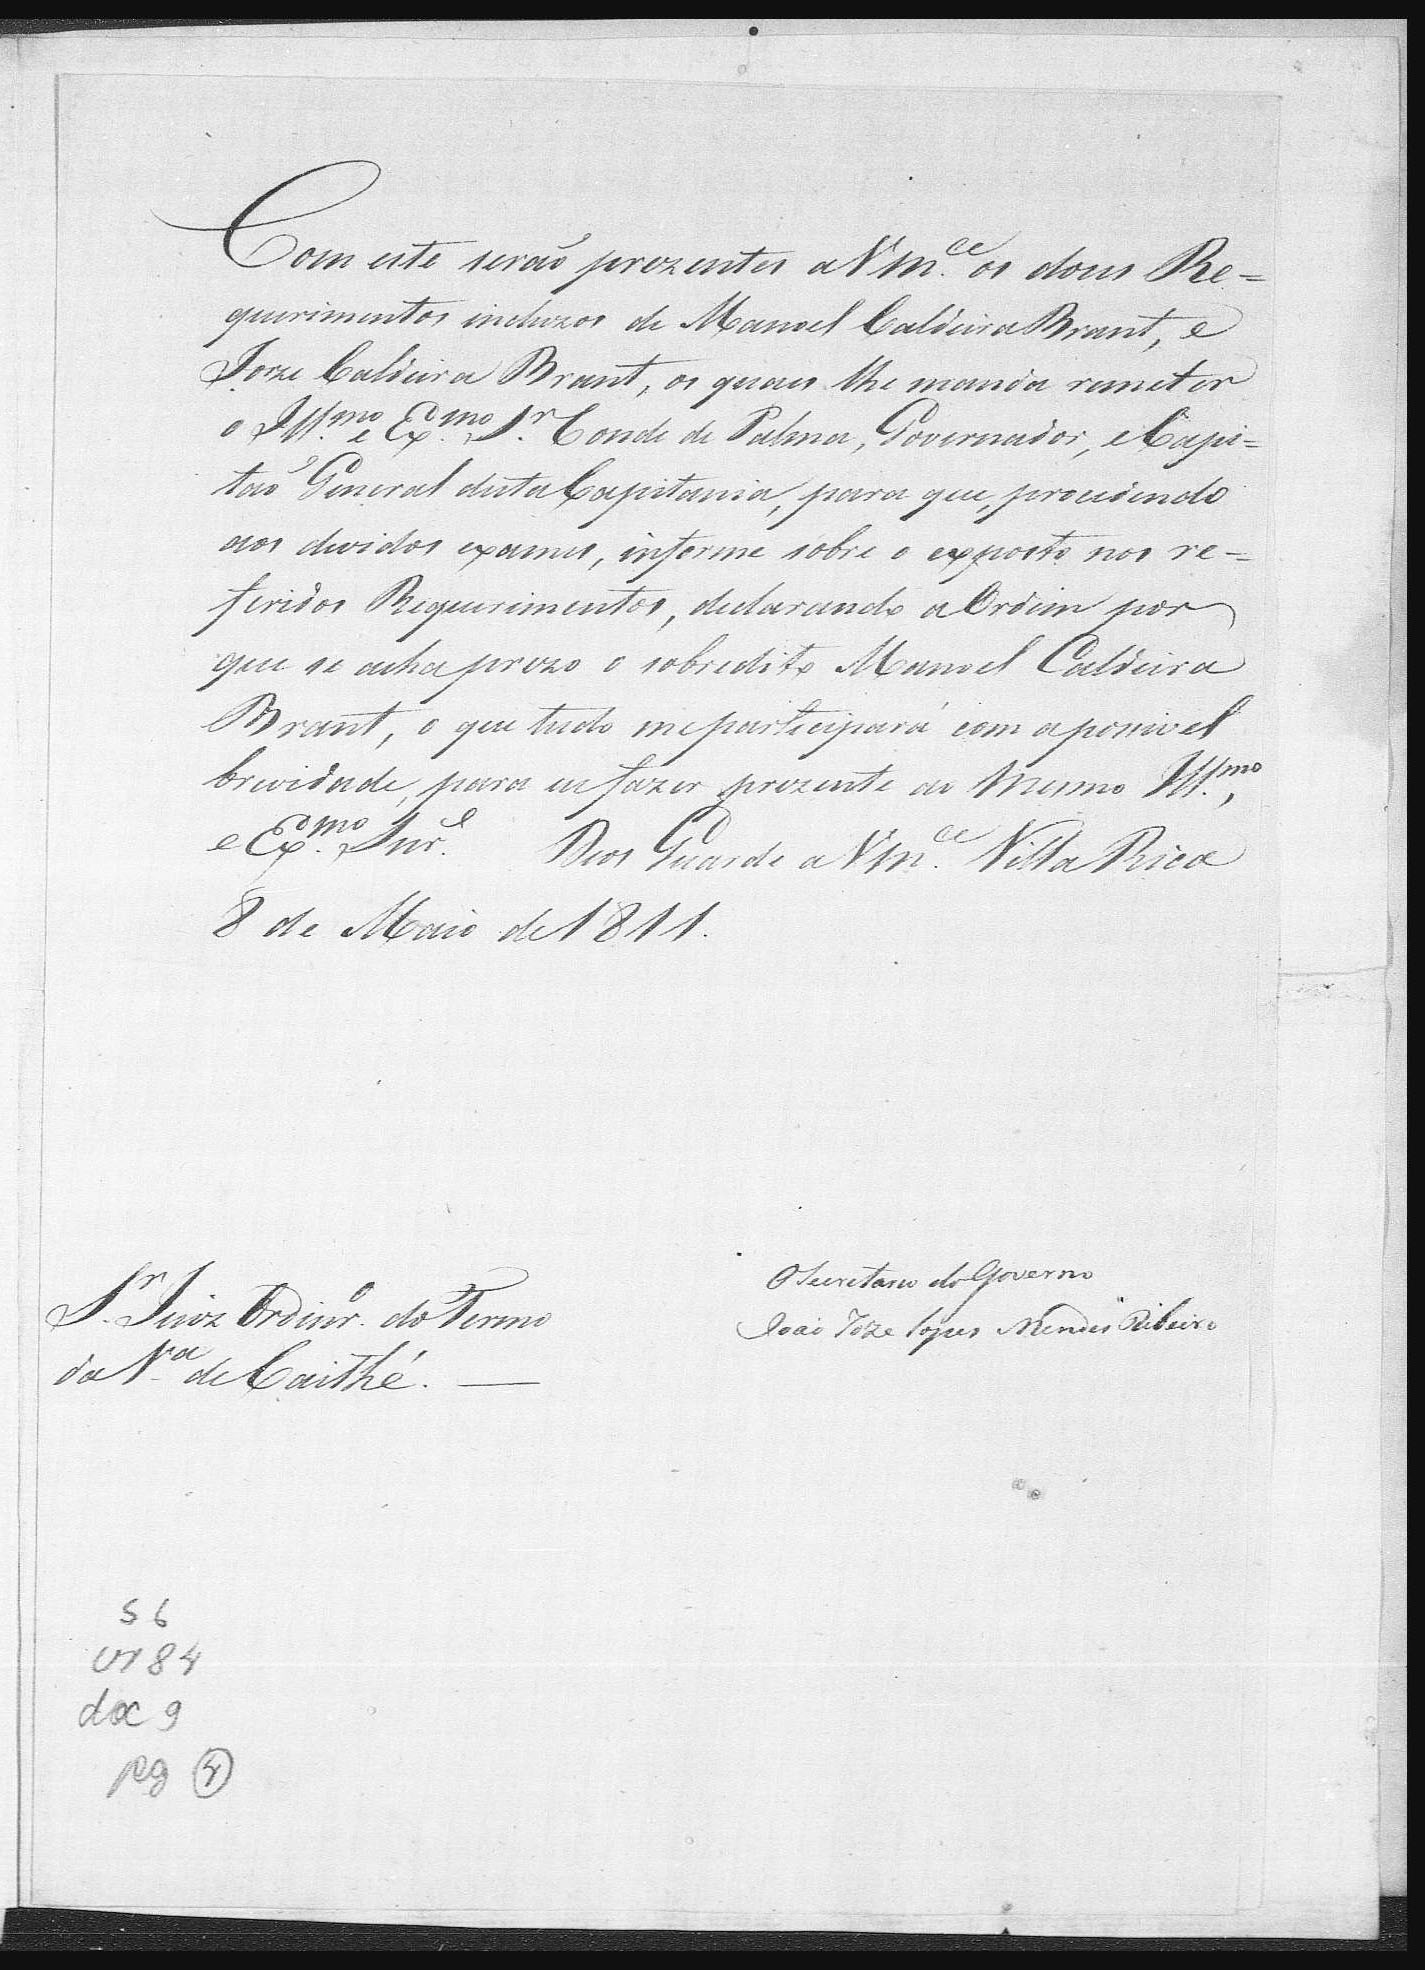 Com este seraõ prezentes a Vm.ce os dous Re=
querimentos incluzos de Manoel Caldeira Brant, e
Joze Caldeira Brant, os quaes lhe manda remeter
o Ill.mo e Ex.mo S.r Conde de Palma, Governador, e Capi=
taõ General desta Capitania, para que, procedendo
aos devidos exames, informe sobre o exposto nos re=
feridos Requerimentos, declarando a Ordem por
que se acha prezo o sobredito Manoel Caldeira
Brant, o que tudo me participará com a possivel
brevidade, para eu fazer prezente ao Mesmo Ill.mo,
e Ex.mo Snr. Deos Guarde a Vm.ce Villa Rica
8 de Maio de 1811.
O Secretario do Governo
João Joze Lopes Mendes Ribeiro
S.r Juiz Ordinr.o do Termo
da V.a de Caithé. —
S6
cx 84
doc 9
pg 4